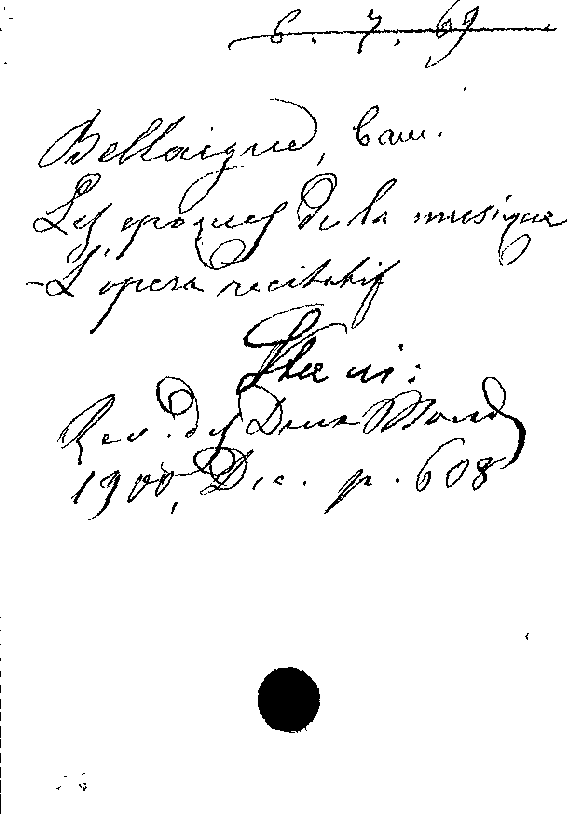 6. 7. 69
Bellaigue, Cam.
Les epoques de la musique
- L'opera recitatif
in:
Rev. des Deux Mond
1900, Dec. p. 608